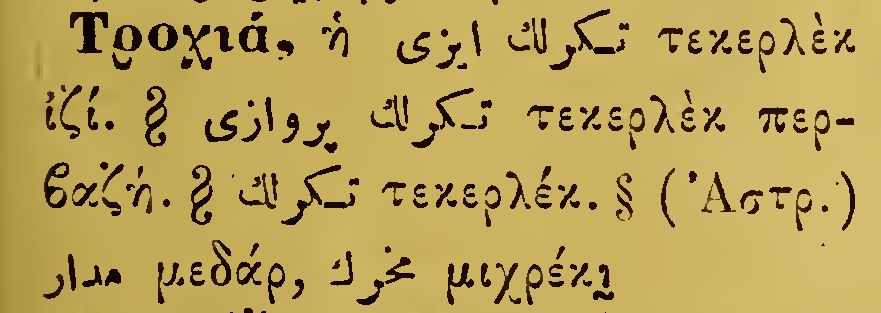 Τροχιά, ἡ تكرلك ايزى τεκερλὲκ
ἰζί. § تكرلك پروازى τεκερλὲκ περ-
βαζή. § تكرلك τεκερλέκ. § (Ἀστρ.)
مدار μεδάρ, محرك μιχρέκ